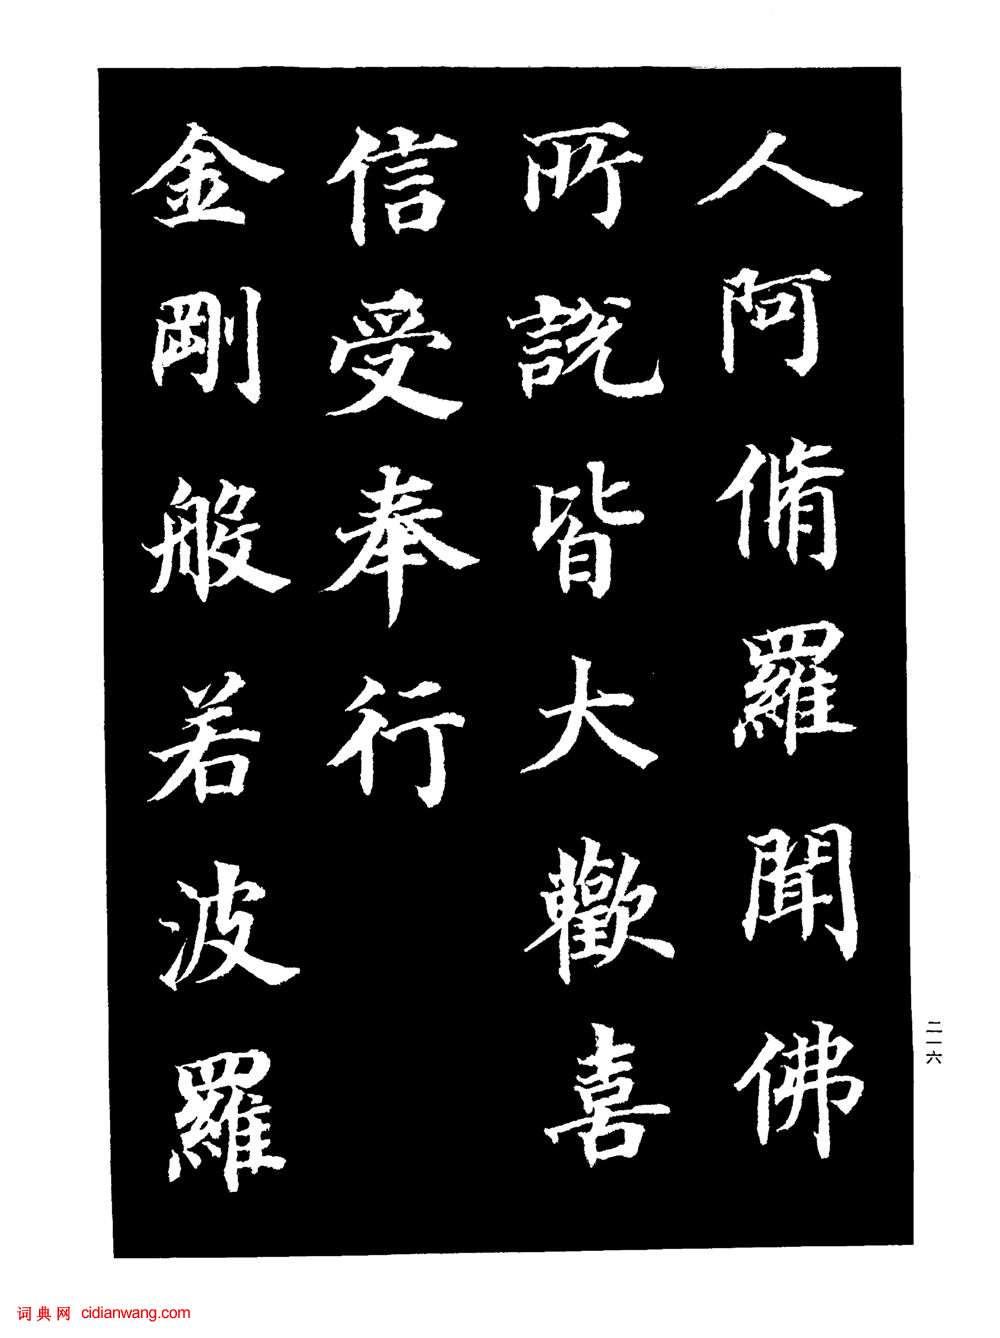 人阿脩羅聞佛
所說皆大歡喜
信受奉行
金剛般若波羅
二一六
词典网 cidianwang.com